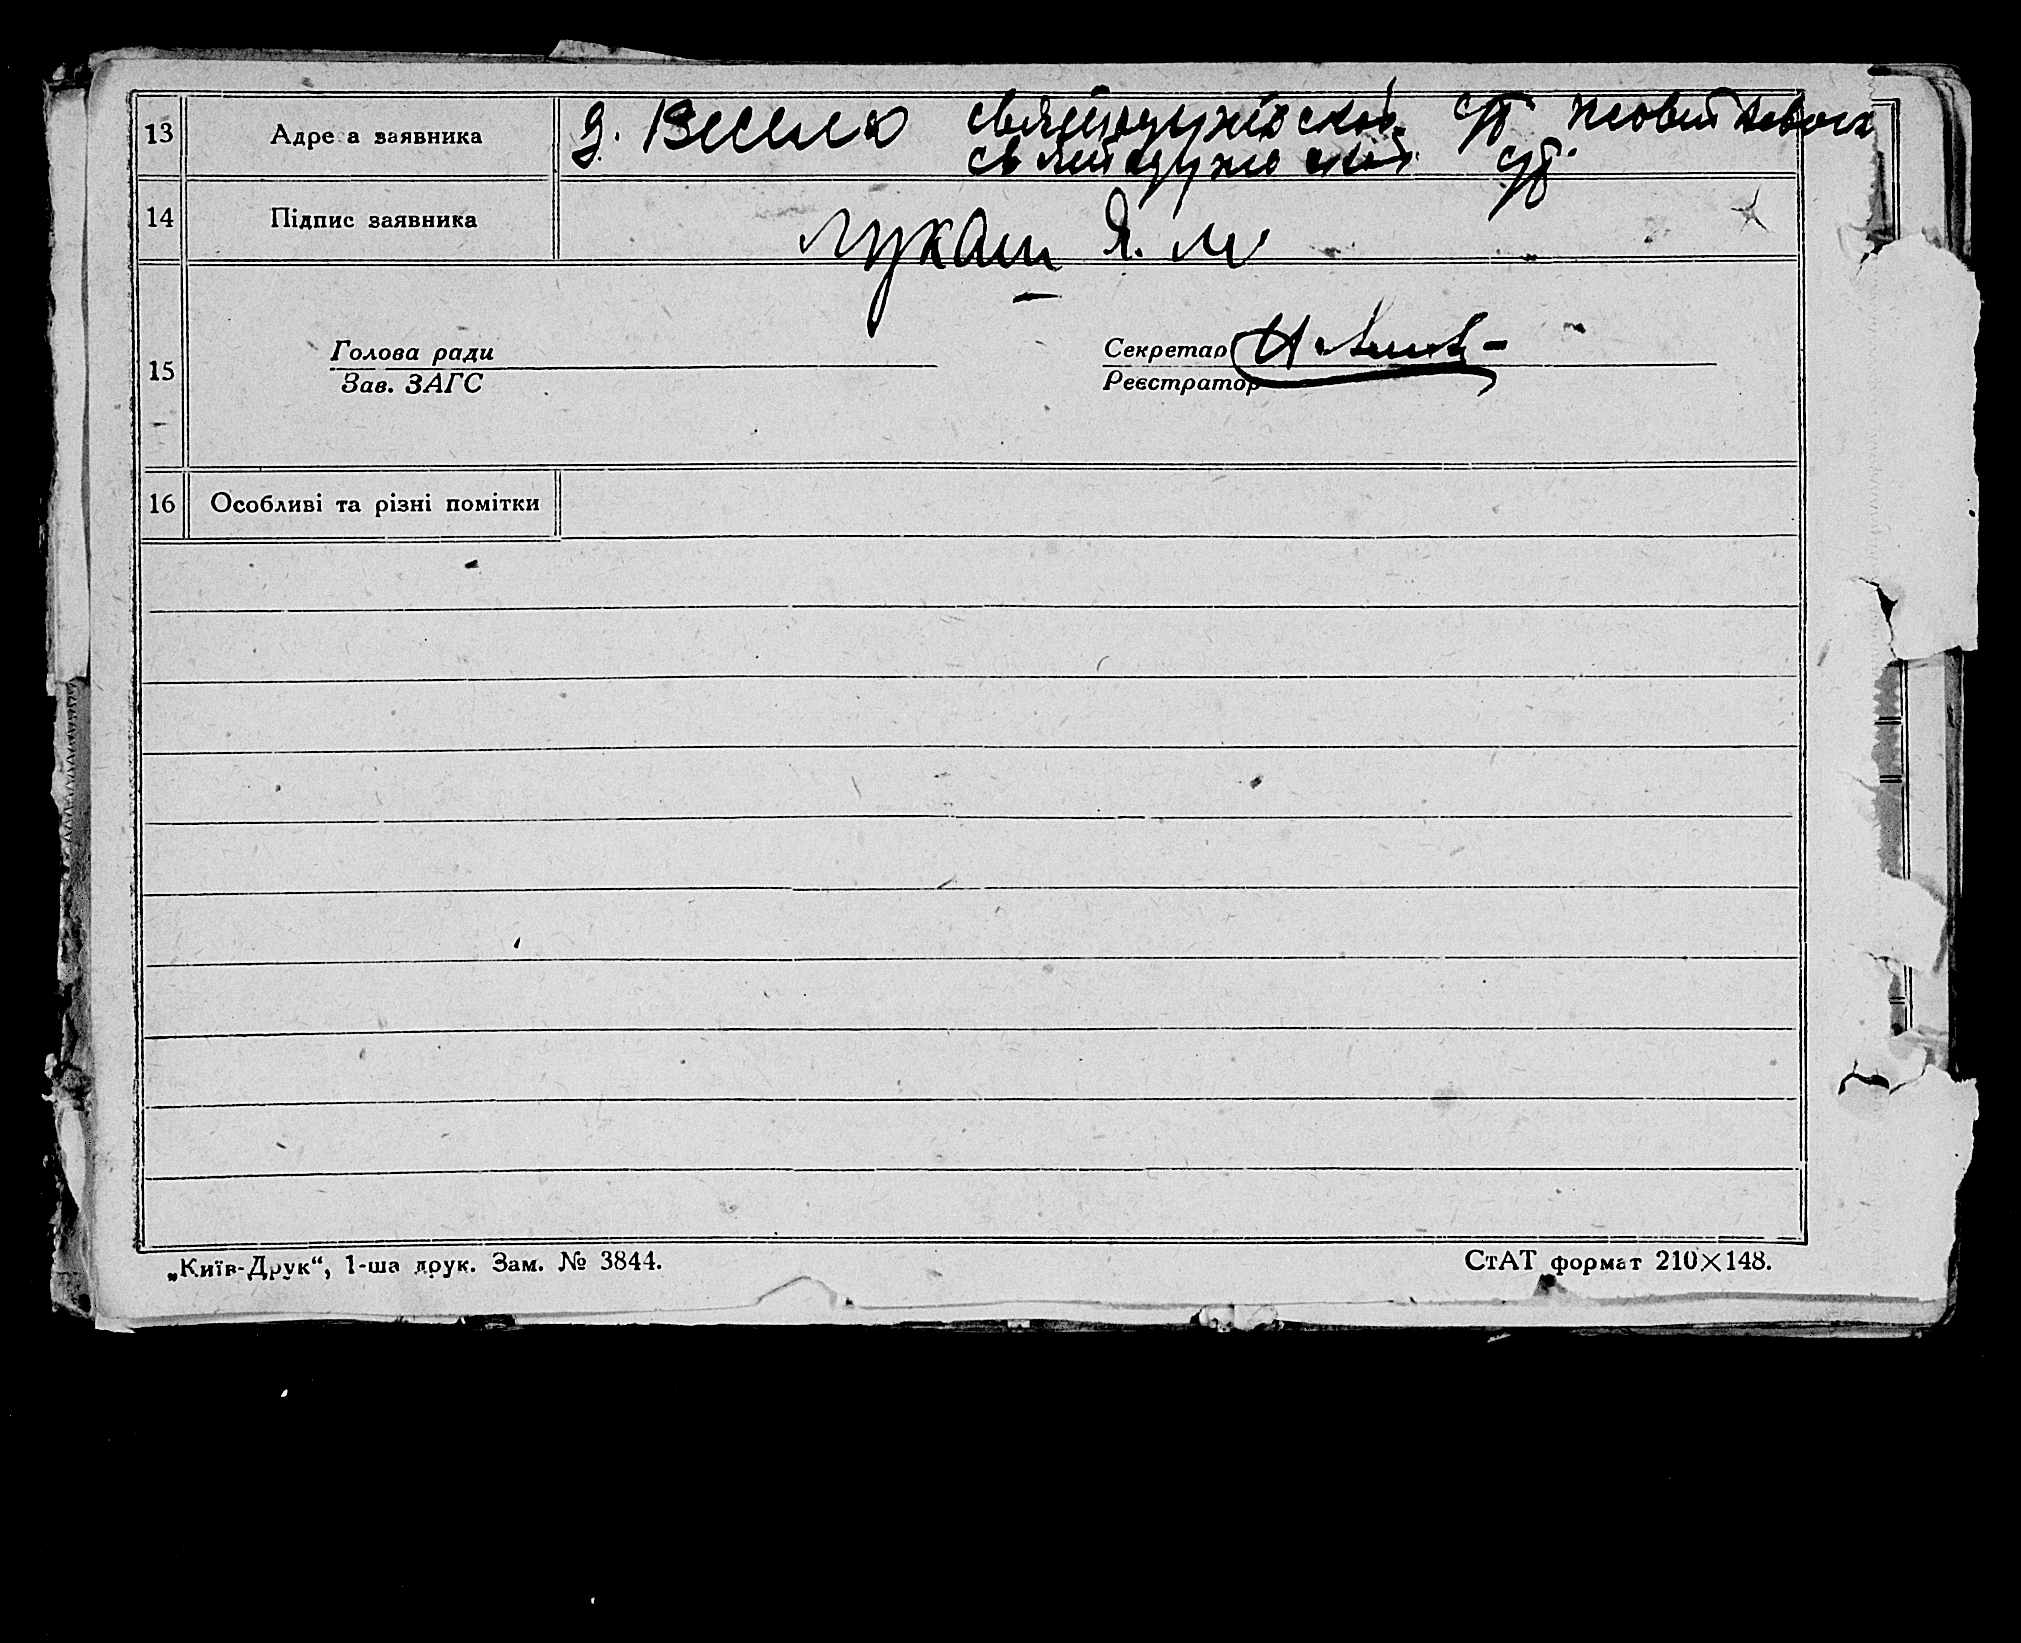 13 Адре а заявника д. Веселе
14 Підпис заявника Лукаш Я. М
Голова ради Секретар
15
Зав. ЗАГС Реєстратор
16 Особливі та різні помітки
„Київ-Друк“, 1-ша друк. Зам. № 3844. СтАТ формат 210×148.